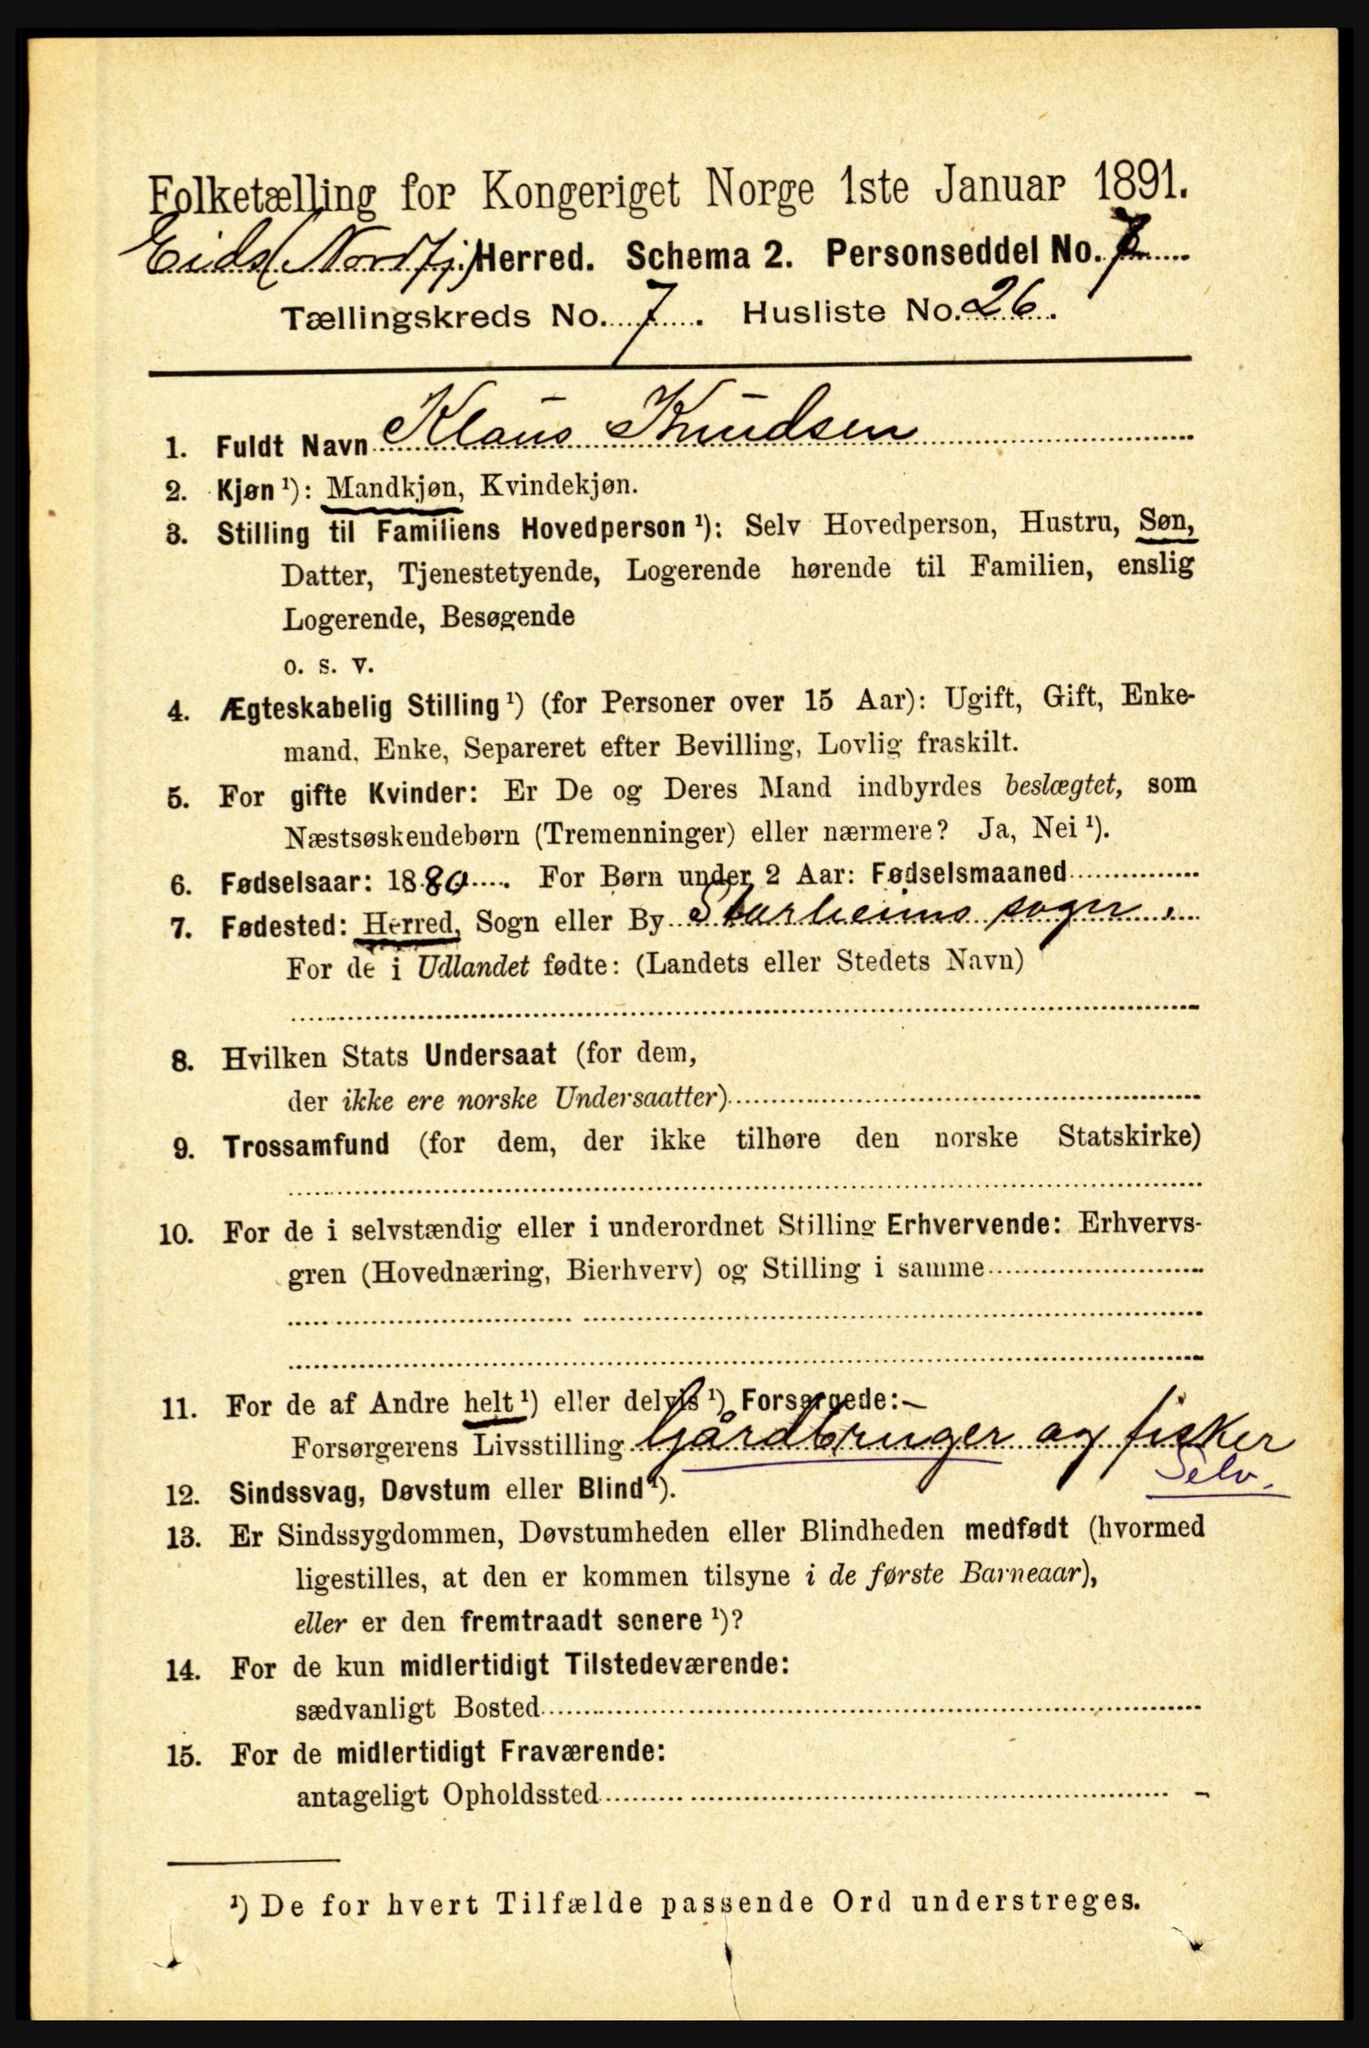 Folketælling for Kongeriget Norge 1ste Januar 1891.
Eids (Nordfj.) Herred. Schema 2. Personseddel No. 7
Tællingskreds No. 7. Husliste No. 26.
1. Fuldt Navn Klaus Knudsen
2. Kjøn¹): Mandkjøn, Kvindekjøn.
3. Stilling til Familiens Hovedperson¹): Selv Hovedperson, Hustru, Søn,
Datter, Tjenestetyende, Logerende hørende til Familien, enslig
Logerende, Besøgende
o. s. v.
4. Ægteskabelig Stilling¹) (for Personer over 15 Aar): Ugift, Gift, Enke-
mand, Enke, Separeret efter Bevilling, Lovlig fraskilt.
5. For gifte Kvinder: Er De og Deres Mand indbyrdes beslægtet, som
Næstsøskendebørn (Tremenninger) eller nærmere? Ja, Nei¹).
6. Fødselsaar: 1880. For Børn under 2 Aar: Fødselsmaaned
7. Fødested: Herred, Sogn eller By Starheims sogn.
For de i Udlandet fødte: (Landets eller Stedets Navn)
8. Hvilken Stats Undersaat (for dem,
der ikke ere norske Undersaatter)
9. Trossamfund (for dem, der ikke tilhøre den norske Statskirke)
10. For de i selvstændig eller i underordnet Stilling Erhvervende: Erhvervs-
gren (Hovednæring, Bierhverv) og Stilling i samme
11. For de af Andre helt¹) eller delvis¹) Forsørgede:
Forsørgerens Livsstilling Gårdbruger og fisker
Selv.
12. Sindssvag, Døvstum eller Blind¹).
13. Er Sindssygdommen, Døvstumheden eller Blindheden medfødt (hvormed
ligestilles, at den er kommen tilsyne i de første Barneaar),
eller er den fremtraadt senere¹)?
14. For de kun midlertidigt Tilstedeværende:
sædvanligt Bosted
15. For de midlertidigt Fraværende:
antageligt Opholdssted
¹) De for hvert Tilfælde passende Ord understreges.